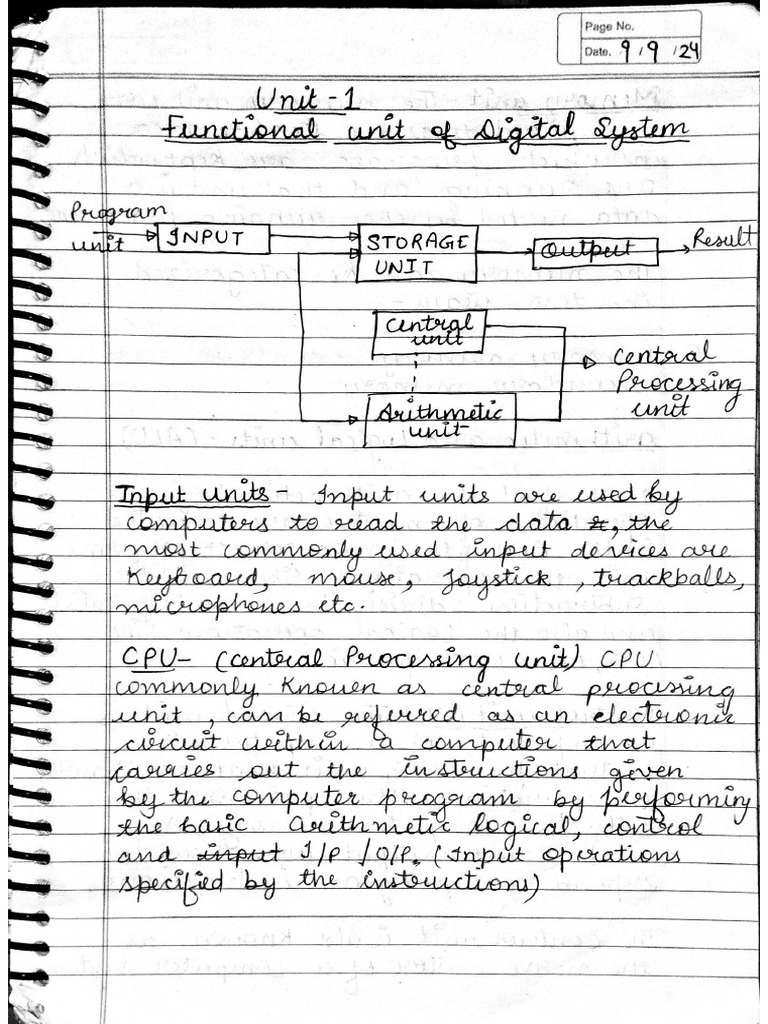 Page No.
Date. 9/9/24
Unit-1
Functional unit of Digital System
Program
unit
INPUT
STORAGE
UNIT
Output
Result
Central
unit
Arithmetic
unit
Central
Processing
unit
Input units - Input units are used by
computers to read the data , the
most commonly used input devices are
Keyboard, mouse, Joystick, trackballs,
microphones etc.
CPU - (Central Processing unit) CPU
commonly Known as central processing
unit, can be referred as an electronic
circuit within a computer that
carries out the instructions given
by the computer program by performing
the basic arithmetic logical, control
and input I/P /O/P. (Input operations
specified by the instructions)